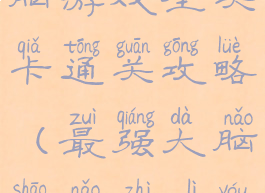 脑游戏
qiǎ tōng guān gōng lüè
卡通关攻略
zuì qiáng dà nǎo
(最强大脑
shāo nǎo zhì lì yóu